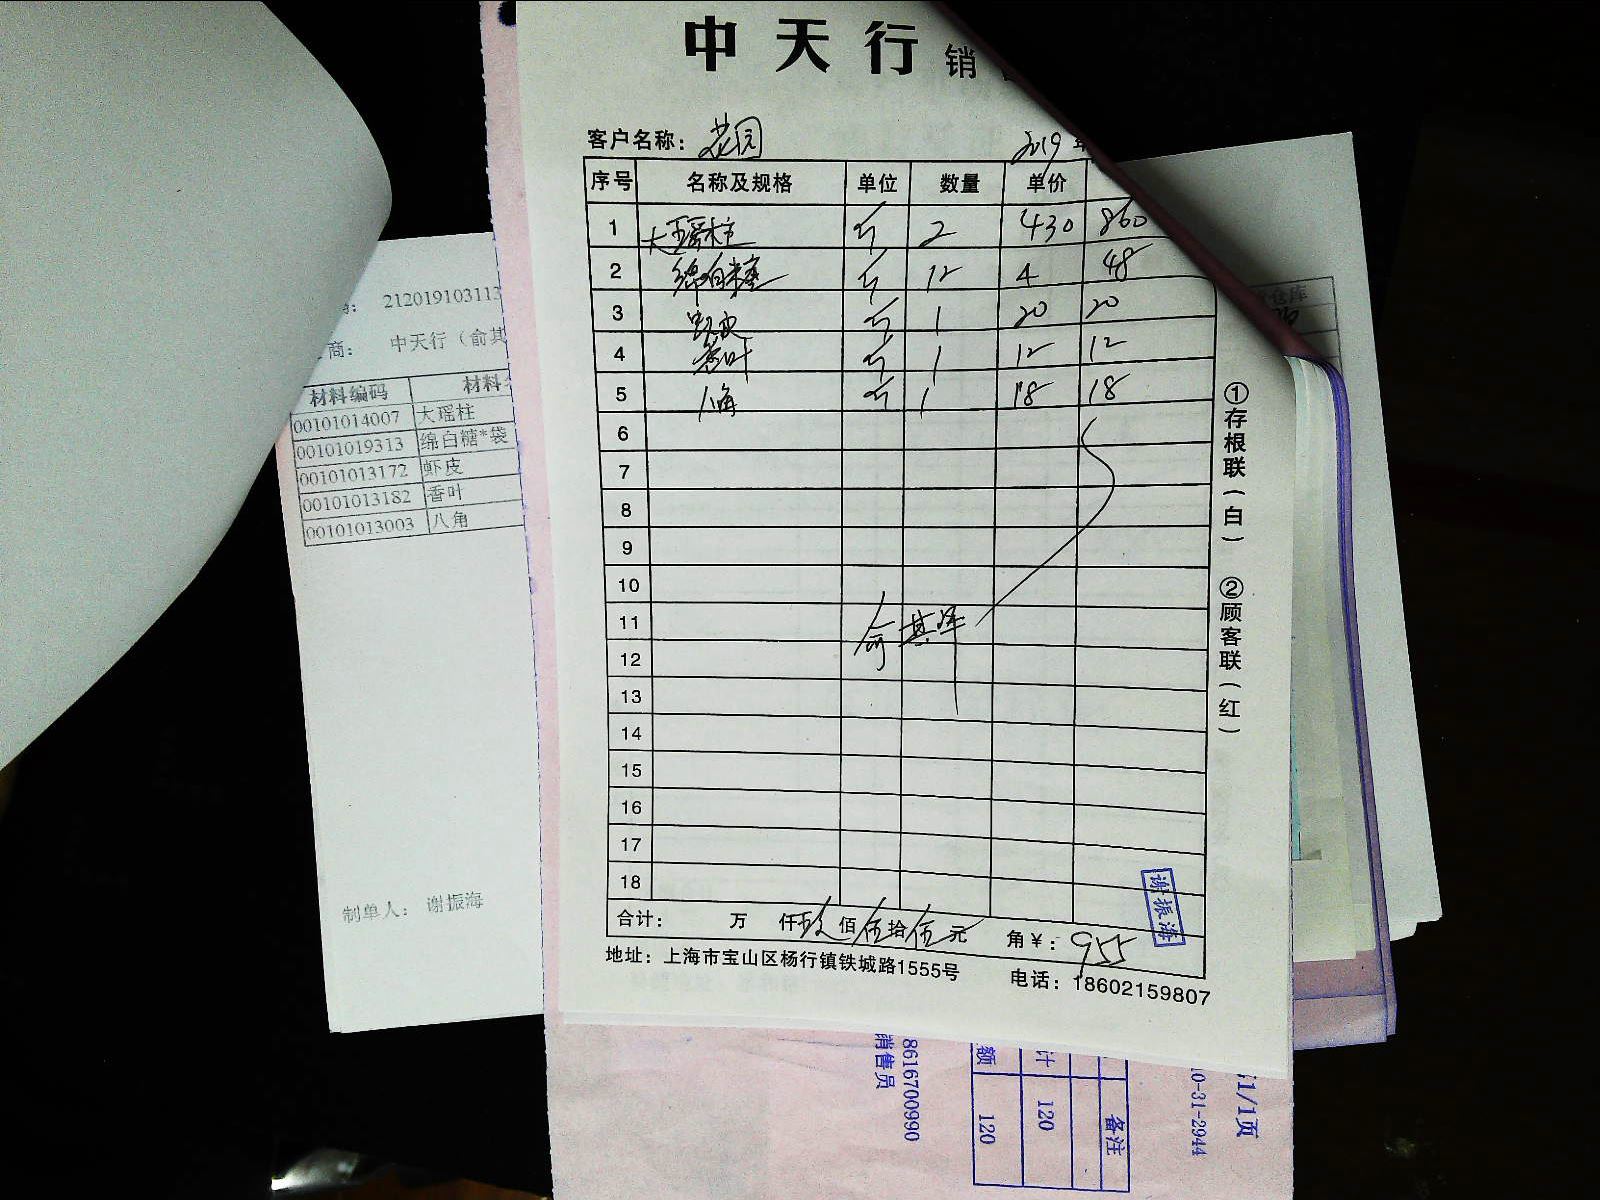 中天行 销
客户名称： 花园 2019 年
序号 名称及规格 单位 数量 单价
1 大瑶柱 斤 2 430 860
2 绵白糖 斤 12 4 48
3 虾皮 斤 1 20 20
4 香叶 斤 1 12 12
5 八角 斤 1 18 18
6
7
8
9
10
11
12
13
14
15
16
17
18
合计： 万 仟 玖 佰 伍 拾 伍 元 角 ¥： 955
谢振海
地址：上海市宝山区杨行镇铁城路1555号 电话：18602159807
①存根联（白） ②顾客联（红）
212019103113
商： 中天行（俞其
材料编码 材料
00101014007 大瑶柱
00101019313 绵白糖*袋
00101013172 虾皮
00101013182 香叶
00101013003 八角
制单人： 谢振海
仓库
1/1页
10-31-2944
备注
计 120
额 120
8616700990
销售员